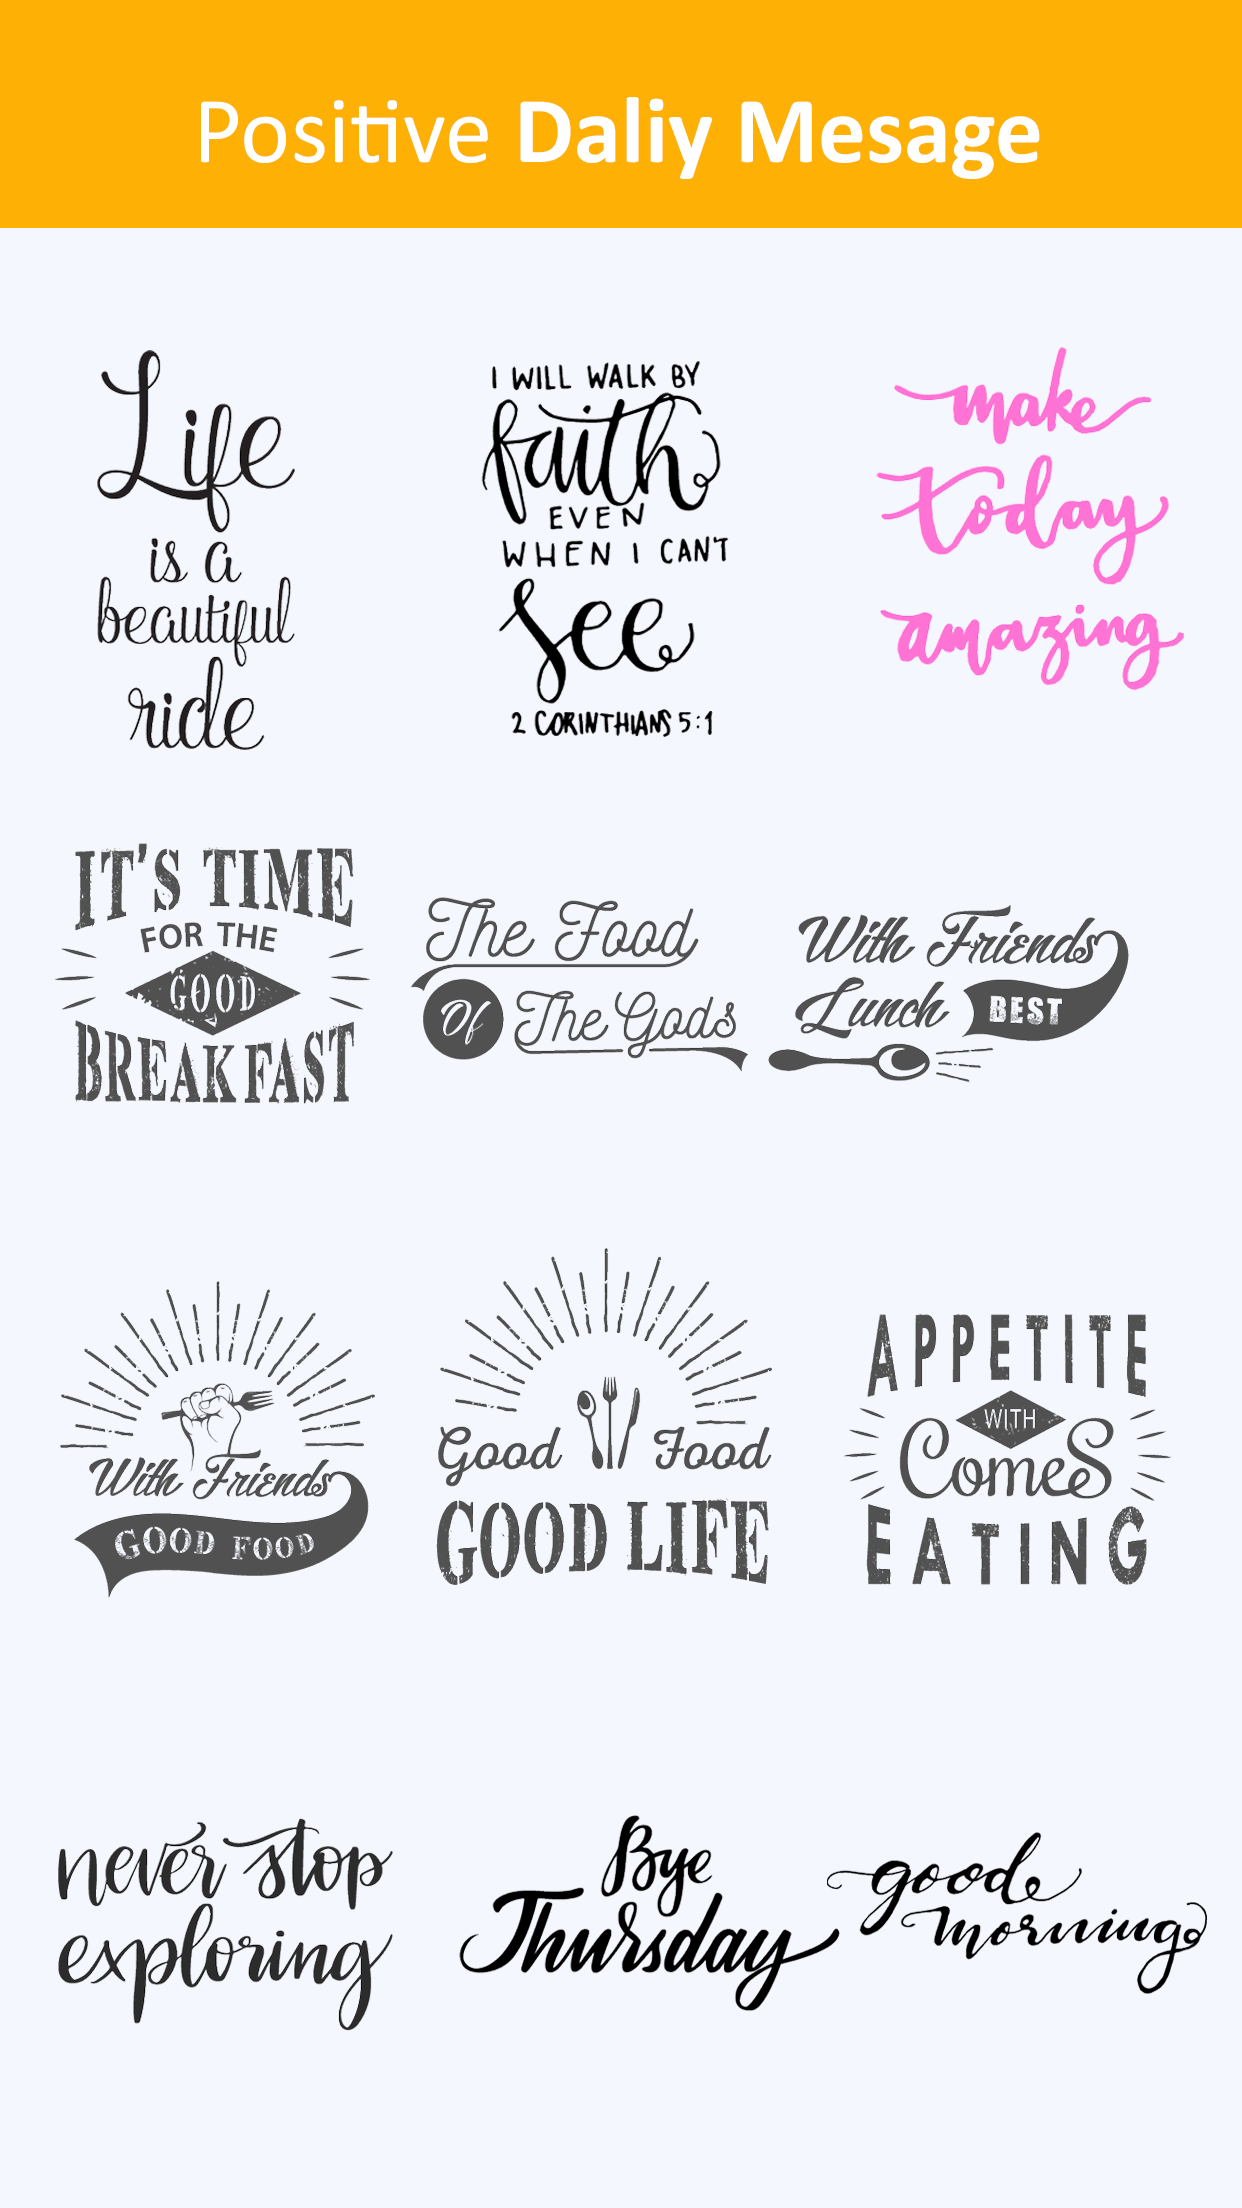 Positive Daliy Mesage
Life
is a
beautiful
ride
I WILL WALK BY
faith
EVEN
WHEN I CAN'T
see
2 CORINTHIANS 5:1
make
today
amazing
IT'S TIME
FOR THE
GOOD
BREAKFAST
The Food
Of The Gods
With Friends
Lunch BEST
With Friends
GOOD FOOD
Good Food
GOOD LIFE
APPETITE
WITH
ComeS
EATING
never stop
exploring
Bye
Thursday
good
morning